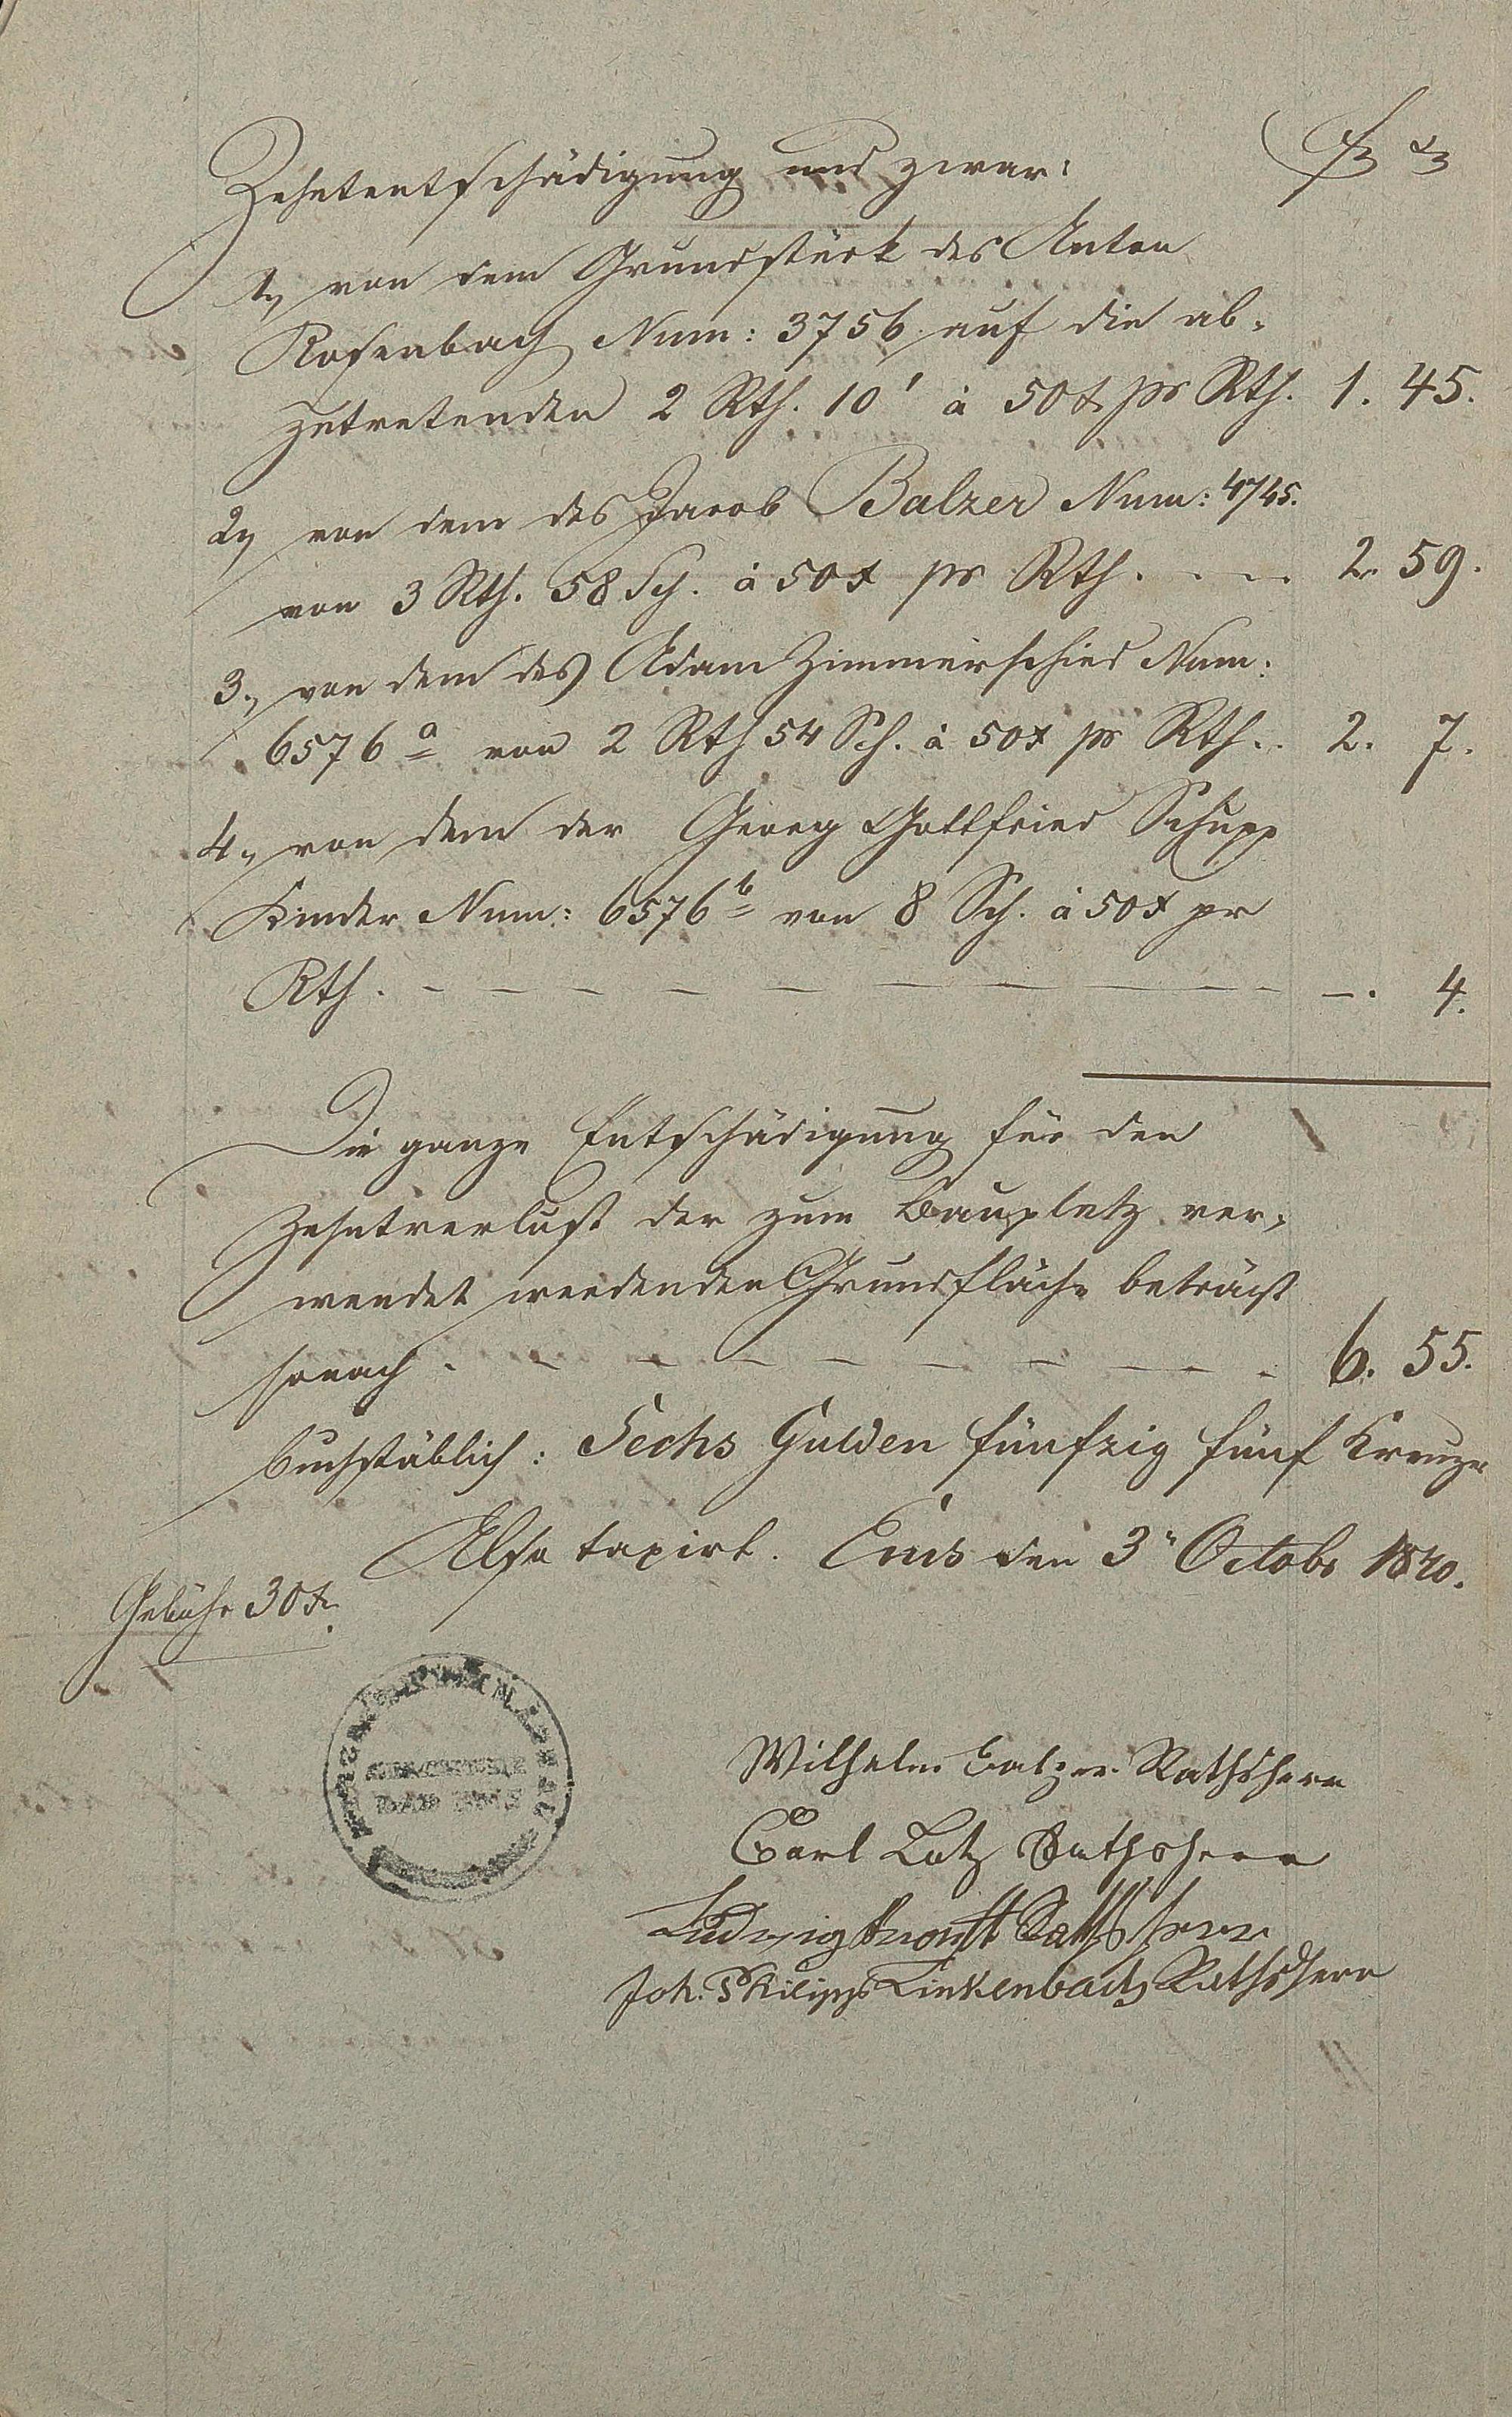 Zehntentschädigung und zwar: f x
1, von dem Grundstück des Anton
Rosenbach Num: 3756 auf die ab-
zutretenden 2 Rth. 10' à 50 x pr Rth. 1. 45.
2, von dem des Jacob Balzer Num: 4745.
von 3 Rth. 58 Sch. à 50 x pr Rth. - - - 2. 59.
3., von dem des Adam Zimmerschied Num:
6576 a von 2 Rth 54 Sch. à 50 x pr Rth.. 2. 7.
4., von dem der Georg Gottfried Schupp
Kinder Num: 6576 b von 8 Sch. à 50 x pr
Rth. - - - - - - - - - - -. 4.
Die ganze Entschädigung für den
Zehntverlust der zum Bauplatz ver-
wendet werdenden Grundfläche beträgt
sonach - - - - - - - - - 6. 55.
buchstäblich: Sechs Gulden fünfzig fünf Kreuzer
Also taxirt. Ems den 3" Octobr 1840.
Gebühr 30 x.
Wilhelm Balzer Rathsherr
Carl Lotz Rathsherr
Ludwig Rathsherr
Joh. Philipps Linkenbach Rathsherr